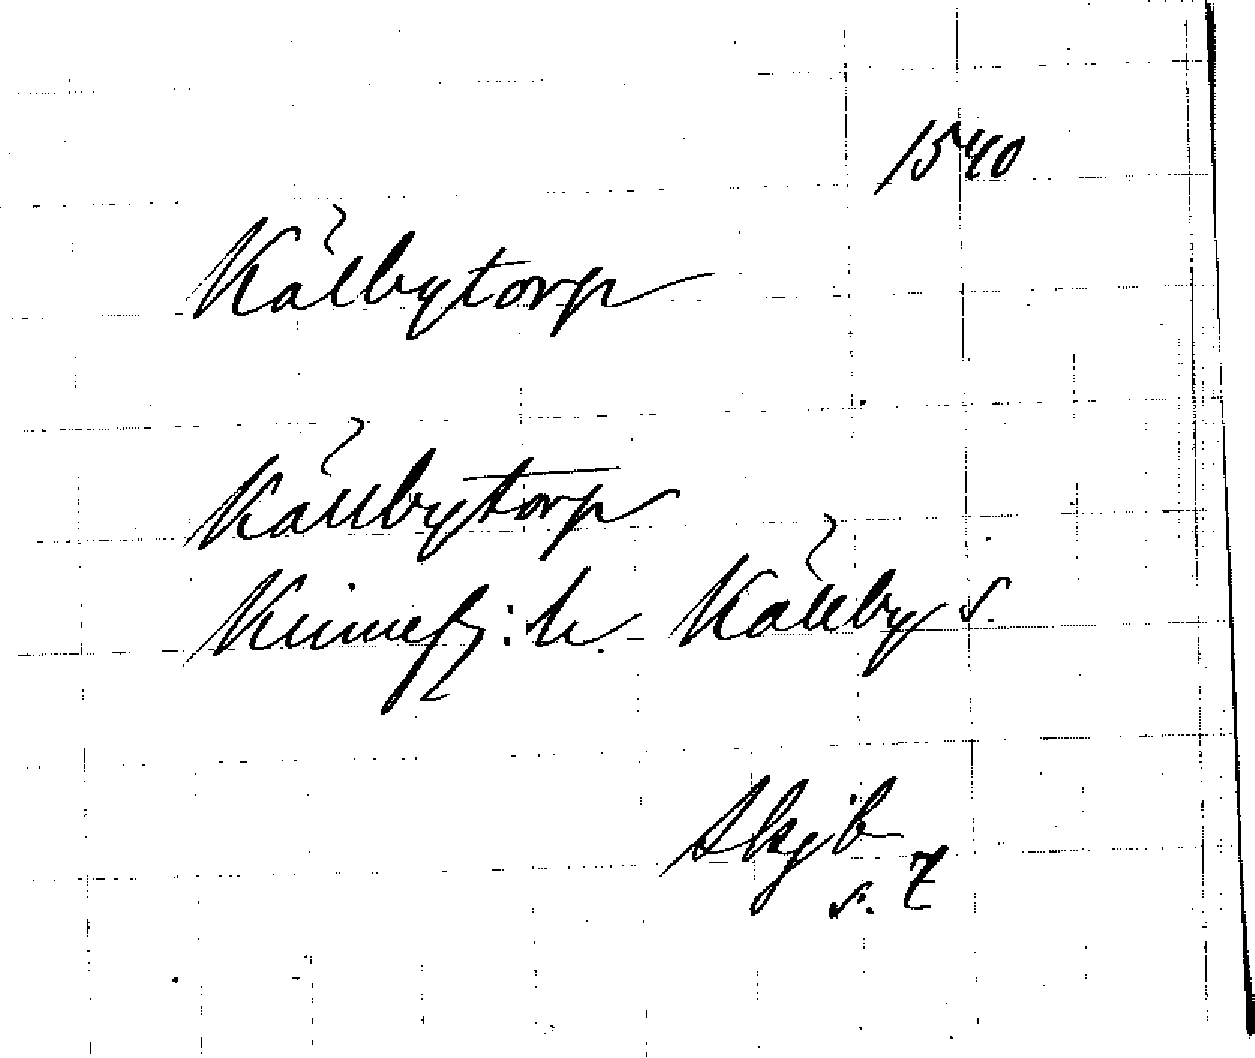 1540
Kålbytorp
Kållbytorp
Kinnefj:h. Kållby s.
Skjb
s. 7